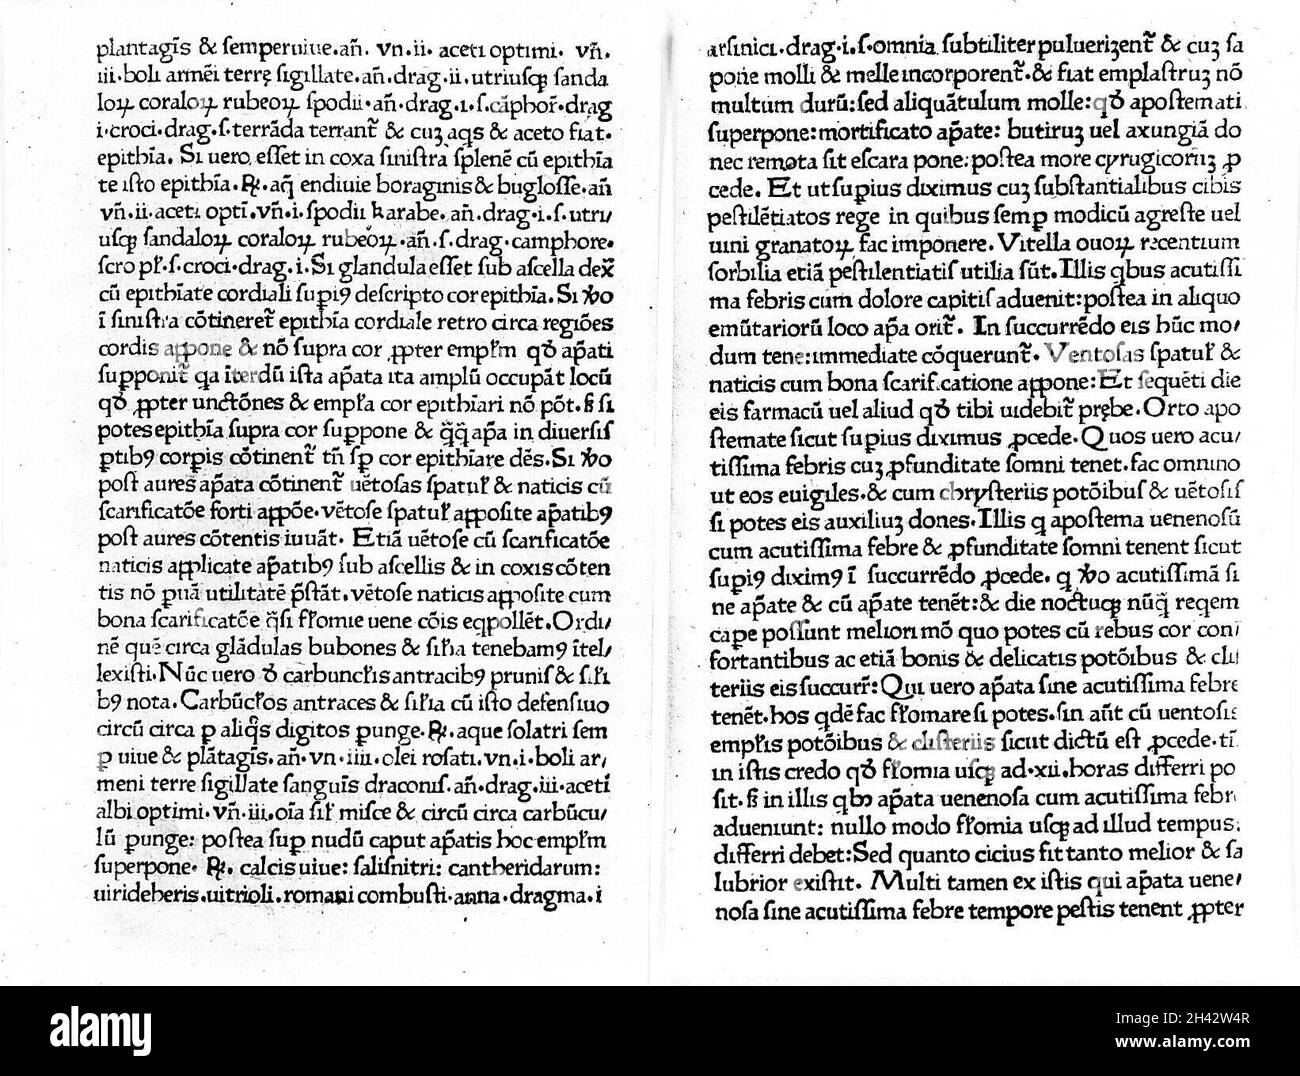 plantagīs & ſemperuiue.an̄. vn.ii. aceti optimi. vn̄.
iii.boli armēi terrę ſigillate.an̄.drag.ii.utriuſqꝫ ſanda
loꝝ coraloꝝ rubeoꝝ ſpodii.an̄.drag.i.ſ.cāphor̄.drag
i.croci.drag.ſ.terrāda terrant̄ & cuꝫ aq̄s & aceto fiat.
epithīa. Si uero eſſet in coxa ſiniſtra ſplenē cū epithīa
te iſto epithīa.℞.aq̄ endiuie boraginis & bugloſſe.an̄
vn̄.ii.aceti optī.vn̄.i.ſpodii karabe.an̄.drag.i.ſ.utri/
uſqꝫ ſandaloꝝ coraloꝝ rubeoꝝ.an̄.ſ.drag.camphore.
ſcro pł.ſ.croci.drag.i.Si glandula eſſet ſub aſcella dex̄
cū epithīate cordiali ſupiꝯ deſcripto cor epithīa.Si ꝟo
ī ſiniſtra cōtineret̄ epithīa cordiale retro circa regiōes
cordis appone & nō ſupra cor ꝓpter empłm qđ ap̄ati
ſupponit̄ qa iterdū iſta ap̄ata ita amplū occupāt locū
qđ ꝓpter unctōnes & empła cor epithīari nō pōt.ẞ ſi
potes epithīa ſupra cor ſuppone & q̄q̄ ap̄a in diuerſis
ꝑtibꝯ corpis cōtinent̄ tn̄ ſꝑ cor epithīare dēs.Si ꝟo
poſt aures ap̄ata cōtinent̄ uētoſas ſpatuł & naticis cū
ſcarificatōe forti appōe.vētoſe ſpatuł appoſite ap̄atibꝯ
poſt aures cōtentis iuuāt. Etiā uētoſe cū ſcarificatōe
naticis applicate ap̄atibꝯ ſub aſcellis & in coxis cōten
tis nō puā utilitatē p̄ſtāt.vētoſe naticis appoſite cum
bona ſcarificatōe q̄ſi fłomie uene cōis eqpollēt.Ordi/
nē quē circa glādulas bubones & ſiłia tenebamꝯ ītel/
lexiſti.Nūc uero đ carbuncłis antracibꝯ prunis & ſiłi
bꝯ nota.Carbūcłos antraces & ſiłia cū iſto defenſiuo
circū circa ꝑ aliq̄s digitos punge.℞.aque ſolatri ſem
ꝑ uiue & plātagīs.an̄.vn.iiii.olei roſati.vn.i.boli ar/
meni terre ſigillate ſanguīs draconiſ.an̄.drag.iii.aceti
albi optimi.vn̄.iii.oīa ſił miſce & circū circa carbūcu/
lū punge: poſtea ſuꝑ nudū caput ap̄atis hoc empłm
ſuperpone. ℞. calcis uiue: ſaliſnitri: cantheridarum:
uirideheris.uitrioli.romani combuſti.anna.dragma.i
arſinici.drag.i.ſ.omnia ſubtiliter pulueriꝫent̄ & cuꝫ ſa
pone molli & melle incorporent̄.& fiat emplaſtruꝫ nō
multum durū:ſed aliquātulum molle:qđ apoſtemati
ſuperpone:mortificato ap̄ate: butiruꝫ uel axungiā do
nec remota ſit eſcara pone:poſtea more cyrugicoruꝫ ꝓ
cede. Et ut ſupius diximus cuꝫ ſubſtantialibus cibis
peſtilētiatos rege in quibus ſemꝑ modicū agreſte uel
uini granatoꝝ fac imponere. Vitella ouoꝝ recentium
ſorbilia etiā peſtilentiatis utilia ſūt.Illis qbus acutiſſi
ma febris cum dolore capitis aduenit:poſtea in aliquo
emūtariorū loco ap̄a orit̄. In ſuccurrēdo eis hūc mo/
dum tene:immediate cōquerunt̄. Ventoſas ſpatuł &
naticis cum bona ſcarificatione appone:Et ſequēti die
eis farmacū uel aliud qđ tibi uidebit̄ prębe.Orto apo
ſtemate ſicut ſupius diximus ꝓcede.Quos uero acu/
tiſſima febris cuꝫ ꝓfunditate ſomni tenet.fac omnino
ut eos euigiles.& cum chryſteriis potōibus & uētoſis
ſi potes eis auxiliuꝫ dones.Illis q apoſtema uenenoſū
cum acutiſſima febre & ꝓfunditate ſomni tenent ſicut
ſupiꝯ diximꝯ ī ſuccurrēdo ꝓcede. q ꝟo acutiſſimā ſi
ne ap̄ate & cū ap̄ate tenēt:& die noctuqꝫ nūq̄ reqem
cape poſſunt meliori mō quo potes cū rebus cor con/
fortantibus ac etiā bonis & delicatis potōibus & cli
teriis eis ſuccurr̄:Qui uero ap̄ata ſine acutiſſima febre
tenēt.hos qdē fac fłomare ſi potes.ſin aūt cū uentoſis
empłis potōibus & cliſteriis ſicut dictū eſt ꝓcede.tn̄
in iſtis credo qđ fłomia uſqꝫ ad.xii.horas differri po
ſit.ẞ in illis qbꝯ ap̄ata uenenoſa cum acutiſſima febr
adueniunt: nullo modo fłomia uſqꝫ ad illud tempus
differri debet:Sed quanto cicius fit tanto melior & ſa
lubrior exiſtit. Multi tamen ex iſtis qui ap̄ata uene/
noſa ſine acutiſſima febre tempore peſtis tenent ꝓpter
alamy
Image ID: 2H42W4R
www.alamy.com